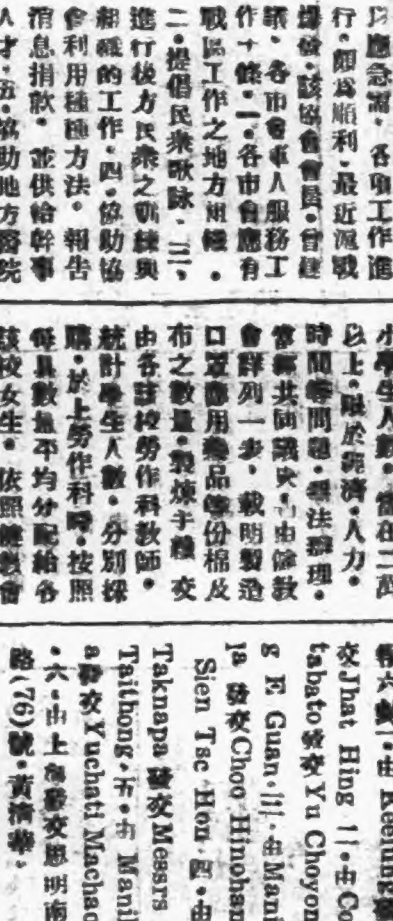 以應急需。各項工作進
行。頗爲順利。最近滬戰
爆發。該協會會員。曾建
議。各市會軍人服務工
作十條。一。各市會應有
戰區工作之地方組織。
二。提倡民衆歌詠。三。
進行後方民衆之訓練與
組織的工作。四。協助協
會利用種種方法。報告
消息捐款。並供給幹事
人才。五。協助地方醫院
小學生人數。當在二萬
以上。限於經濟。人力。
時間等問題。無法辦理。
當經共同議決。由
會詳列一步。載明製造
口罩應用藥品等份棉及
布之數量。製煉手續 交
由各該校勞作科教師。
統計學生人數。分別採
購。於上勞作科時。按照
每具數量平均分配給各
該校女生。依照 會
由 Keelung
交Jhat Hing 二。由C
tabato發交Yu Choyon
g E Guan。三。由Mani
la 發交Choo Hinohan
Sien Tsc Hon 四。由
Taknapa 發交Messrs
Taithong。五。由 Manil
a發交Yuchati Machao
。六。由上海發交思明南
路(76)號。黃清華。